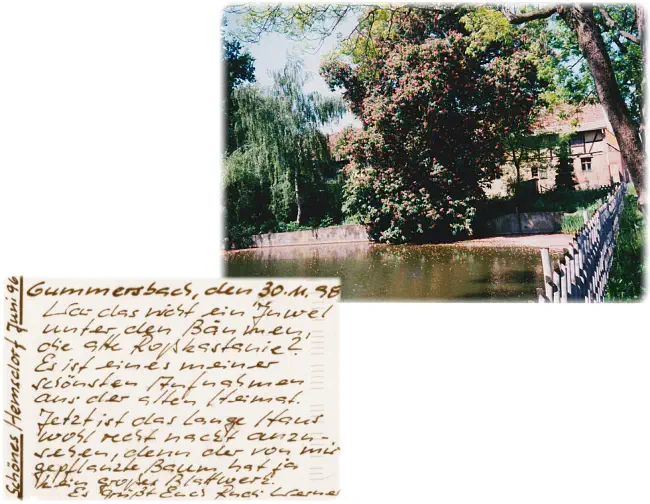 Schönes Hemsdorf Juni 96
Gummersbach, den 30.11.98
War das nicht ein Juwel
unter den Bäumen,
die alte Roßkastanie?
Es ist eines meiner
schönsten Aufnahmen
aus der alten Heimat.
Jetzt ist das lange Haus
wohl recht nackt anzu-
sehen, denn der von mir
gepflanzte Baum hat ja
kein großes Blattwerk.
Es grüßt Euch Rudi Werner